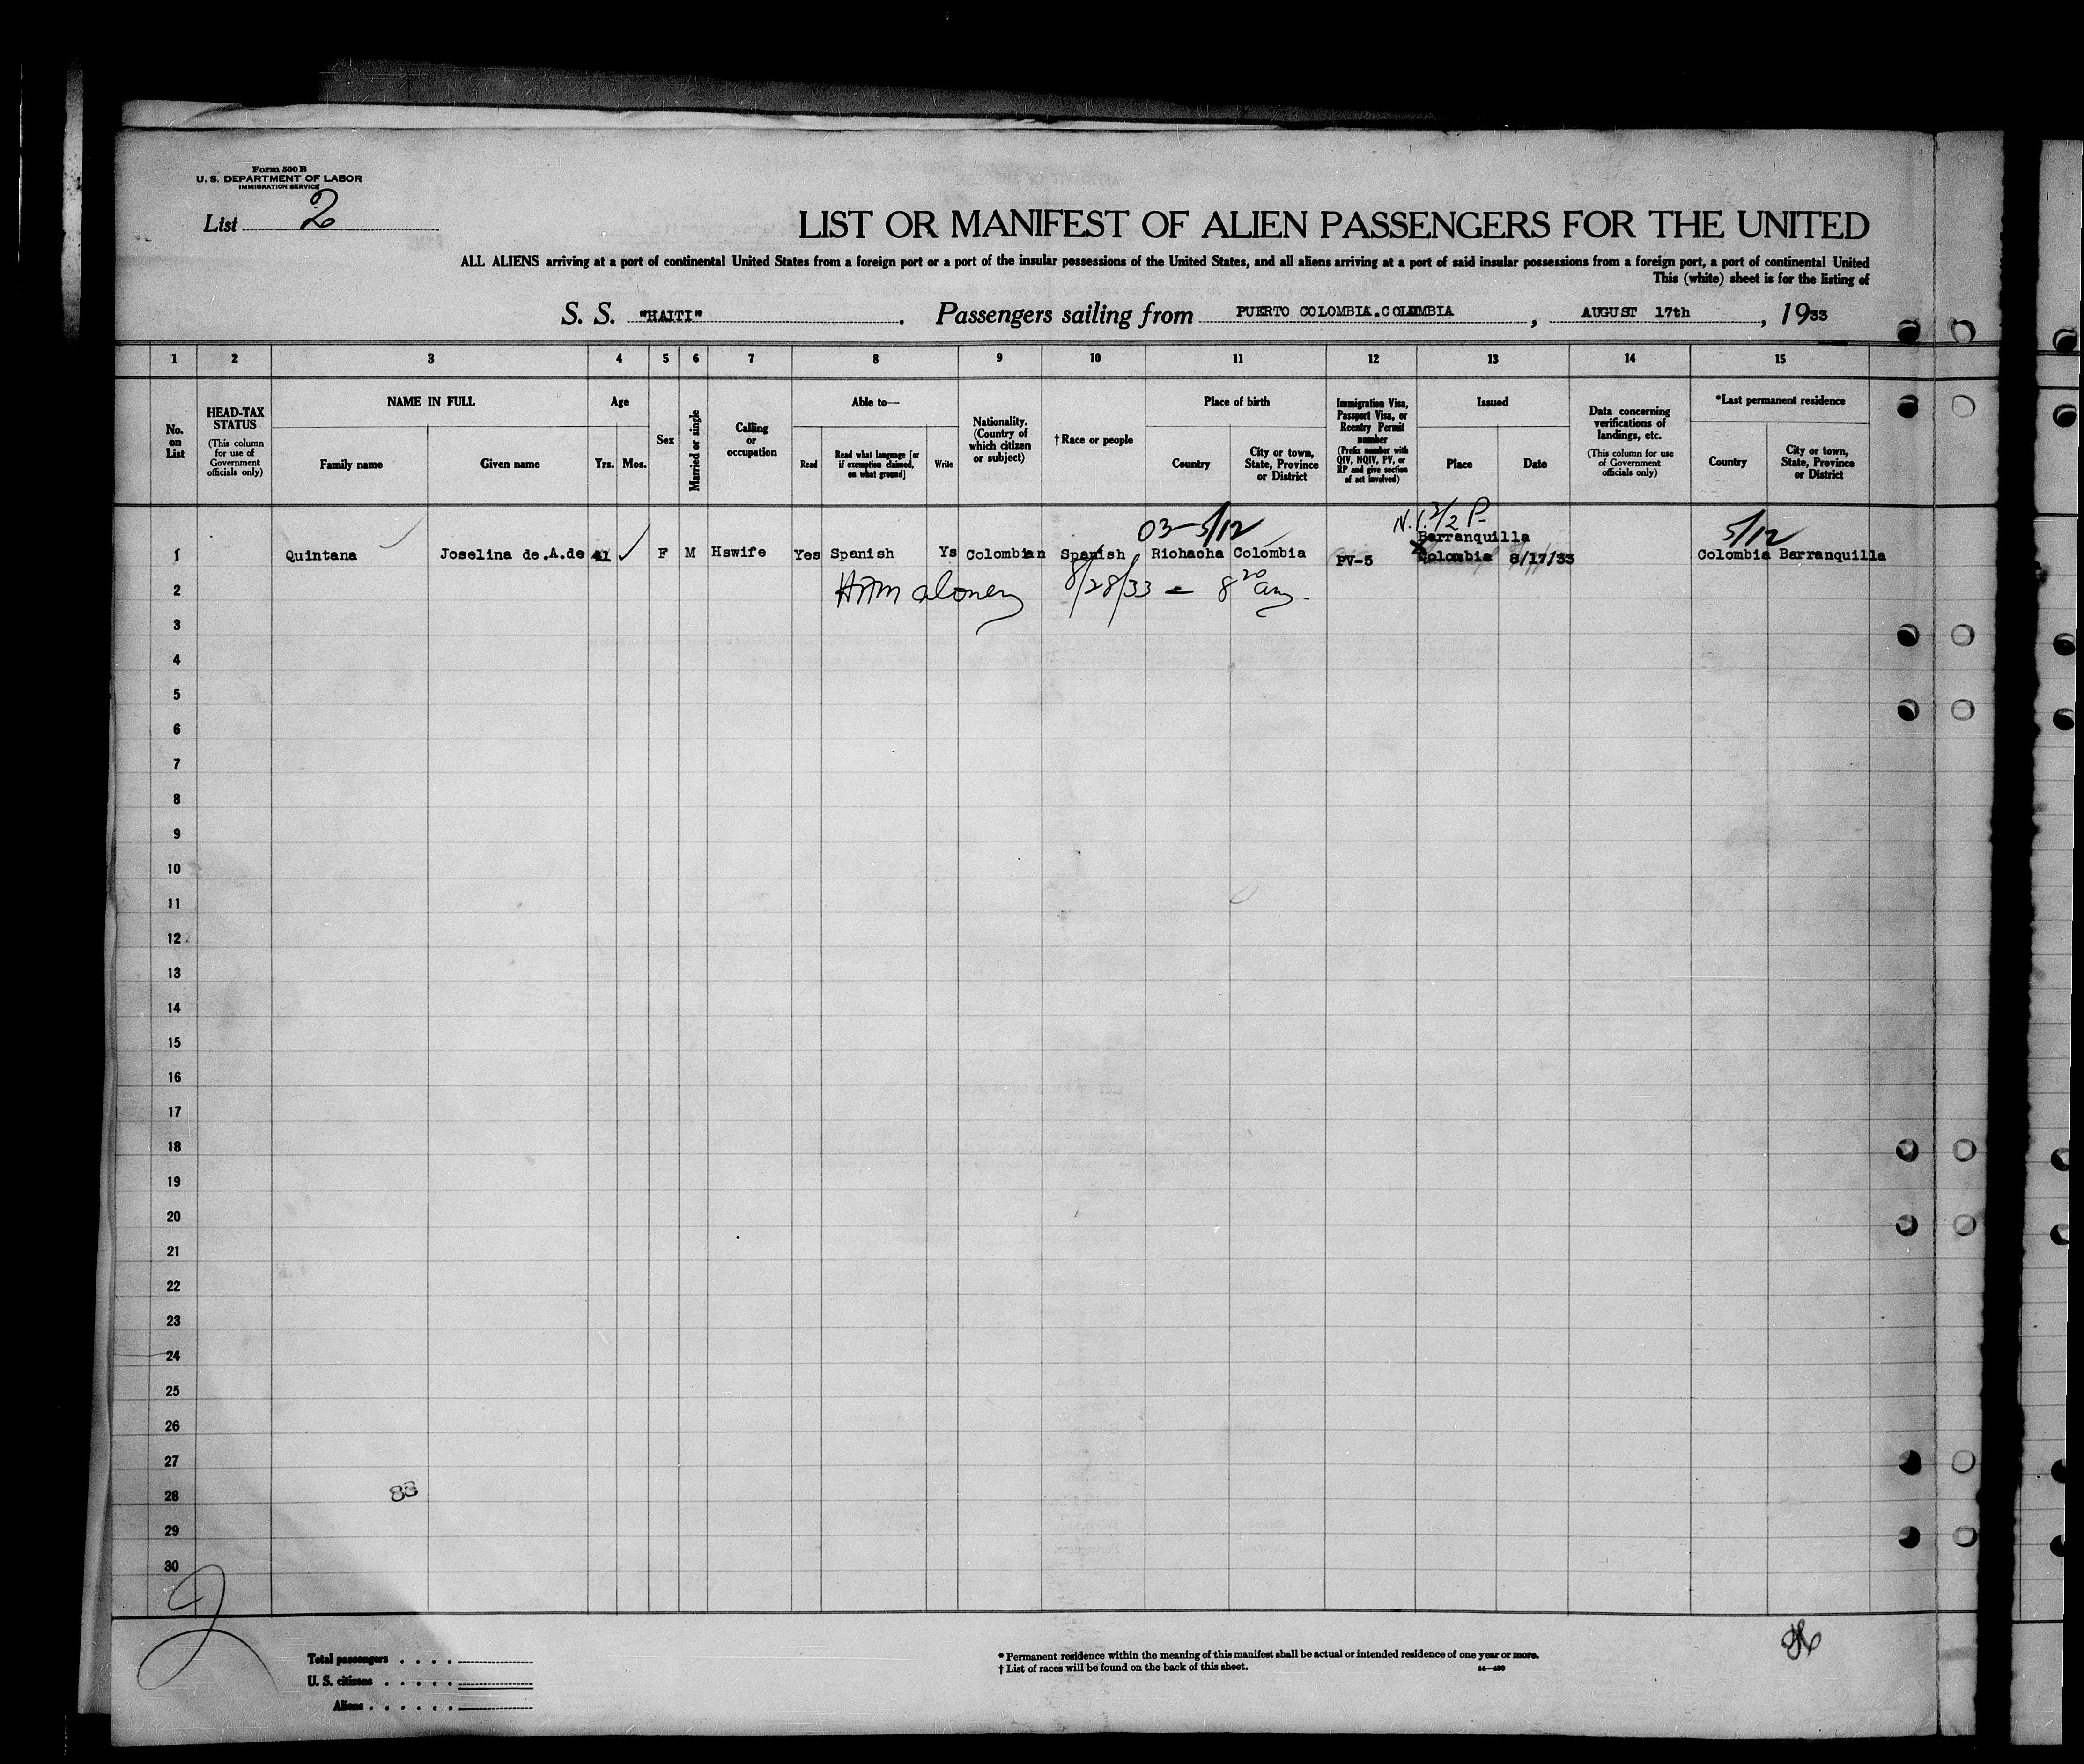 Form 500 B
U. S. DEPARTMENT OF LABOR
IMMIGRATION SERVICE
List 2
LIST OR MANIFEST OF ALIEN PASSENGERS FOR THE UNITED
ALL ALIENS arriving at a port of continental United States from a foreign port or a port of the insular possessions of the United States, and all aliens arriving at a port of said insular possessions from a foreign port, a port of continental United
This (white) sheet is for the listing of
S. S. "HAITI". Passengers sailing from PUERTO COLOMBIA.COLOMBIA, AUGUST 17th, 1933
1 2 3 4 5 6 7 8 9 10 11 12 13 14 15
No. on List
HEAD-TAX STATUS
(This column for use of Government officials only)
NAME IN FULL
Family name
Given name
Age
Yrs. Mos.
Sex
Married or single
Calling or occupation
Able to—
Read
Read what language [or if exemption claimed, on what ground]
Write
Nationality. (Country of which citizen or subject)
†Race or people
Place of birth
Country
City or town, State, Province or District
Immigration Visa, Passport Visa, or Reentry Permit number
(Prefix number with QIV, NQIV, PV, or RP and give section of act involved)
Issued
Place
Date
Data concerning verifications of landings, etc.
(This column for use of Government officials only)
*Last permanent residence
Country
City or town, State, Province or District
03-5/12
5/12
Barranquilla
1 Quintana Joselina de.A.de 41 F M Hswife Yes Spanish Ys Colombian Spanish Riohacha Colombia PV-5 Colombia 8/17/33 Colombia Barranquilla
2 8/28/33 - 8 20 am.
3
4
5
6
7
8
9
10
11
12
13
14
15
16
17
18
19
20
21
22
23
24
25
26
27
28
83
29
30
2
Total passengers
U. S. citizens
Aliens
* Permanent residence within the meaning of this manifest shall be actual or intended residence of one year or more.
† List of races will be found on the back of this sheet.
14—430